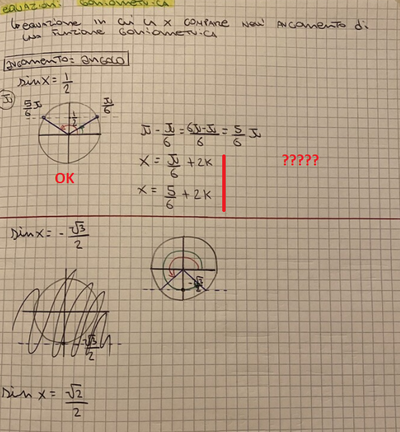 EQUAZIONI GONIOMETRICA
Lo equazione in cui la x compare nell'argomento di
una funzione goniometrica
Argomento = angolo
sin x = 1/2
5/6 π
1/2
π/6
OK
π - π/6 = 6π-π/6 = 5/6 π
x = π/6 + 2K
x = 5/6 + 2K
?????
sin x = - √3/2
-√3/2
-√3/2
sin x = √2/2